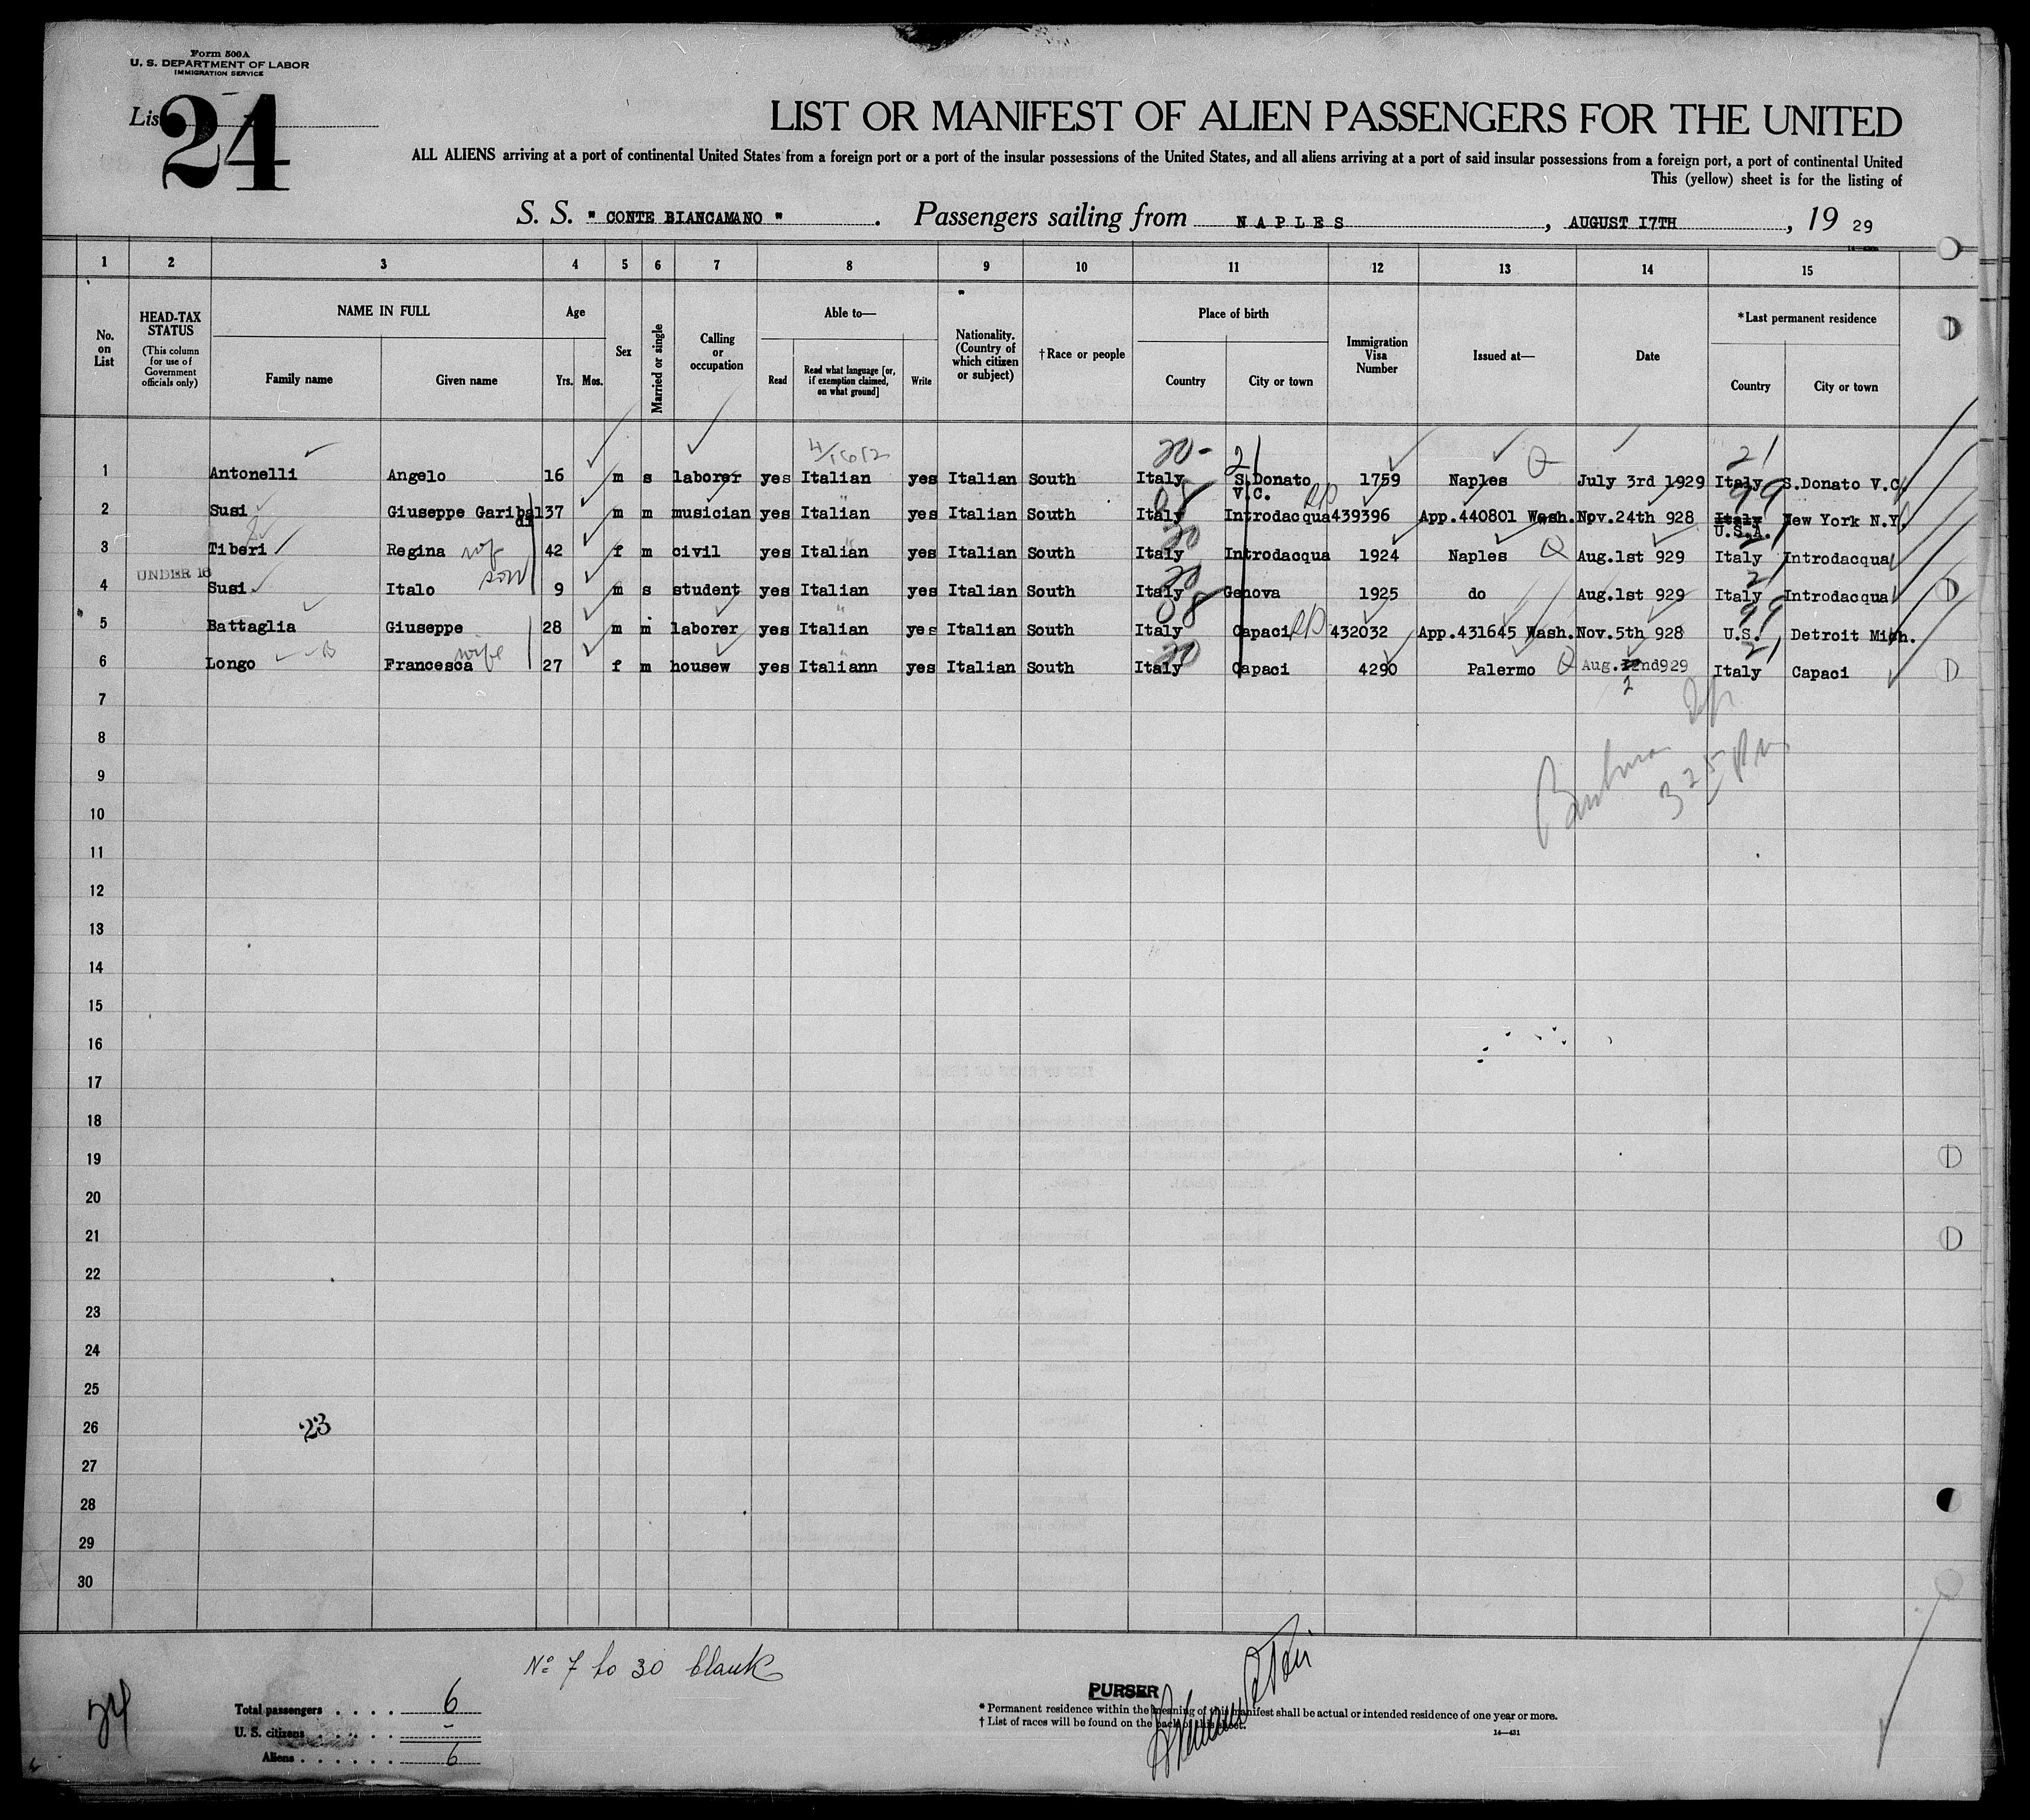 Form 500A
U. S. DEPARTMENT OF LABOR
IMMIGRATION SERVICE
List 24
LIST OR MANIFEST OF ALIEN PASSENGERS FOR THE UNITED
ALL ALIENS arriving at a port of continental United States from a foreign port or a port of the insular possessions of the United States, and all aliens arriving at a port of said insular possessions from a foreign port, a port of continental United
This (yellow) sheet is for the listing of
S. S. " CONTE BIANCAMANO " . Passengers sailing from NAPLES , AUGUST 17TH , 19 29
1 2 3 4 5 6 7 8 9 10 11 12 13 14 15
No. on List
HEAD-TAX STATUS
(This column for use of Government officials only)
NAME IN FULL
Family name Given name
Age
Yrs. Mos.
Sex
Married or single
Calling or occupation
Able to—
Read
Read what language [or, if exemption claimed, on what ground]
Write
Nationality. (Country of which citizen or subject)
†Race or people
Place of birth
Country City or town
Immigration Visa Number
Issued at—
Date
*Last permanent residence
Country City or town
20- 21 21
1 Antonelli Angelo 16 m s laborer yes Italian yes Italian South Italy S.Donato V.C. 1759 Naples July 3rd 1929 Italy S.Donato V.C.
08 99
2 Susi Giuseppe Garibaldi 37 m m musician yes Italian yes Italian South Italy Introdacqua 439396 App.440801 Wash. Nov.24th 928 Italy U.S.A. New York N.Y.
20 21
3 Tiberi Regina wf 42 f m civil yes Italian yes Italian South Italy Introdacqua 1924 Naples Aug.1st 929 Italy Introdacqua
UNDER 16 son 20 21
4 Susi Italo 9 m s student yes Italian yes Italian South Italy Genova 1925 do Aug.1st 929 Italy Introdacqua
08 99
5 Battaglia Giuseppe 28 m m laborer yes Italian yes Italian South Italy Capaci 432032 App.431645 Wash. Nov.5th 928 U.S. Detroit Mich.
wife 20 21
6 Longo Francesca 27 f m housew yes Italiann yes Italian South Italy Capaci 4290 Palermo Aug. 2nd929 Italy Capaci
2
7
8
9
10
11
12
13
14
15
16
17
18
19
20
21
22
23
24
25
26
23
27
28
29
30
No 7 to 30 blank
24
Total passengers . . . . 6
U. S. citizens . . . . -
Aliens . . . . . . 6
PURSER
* Permanent residence within the meaning of this manifest shall be actual or intended residence of one year or more.
† List of races will be found on the back of this sheet.
14—431